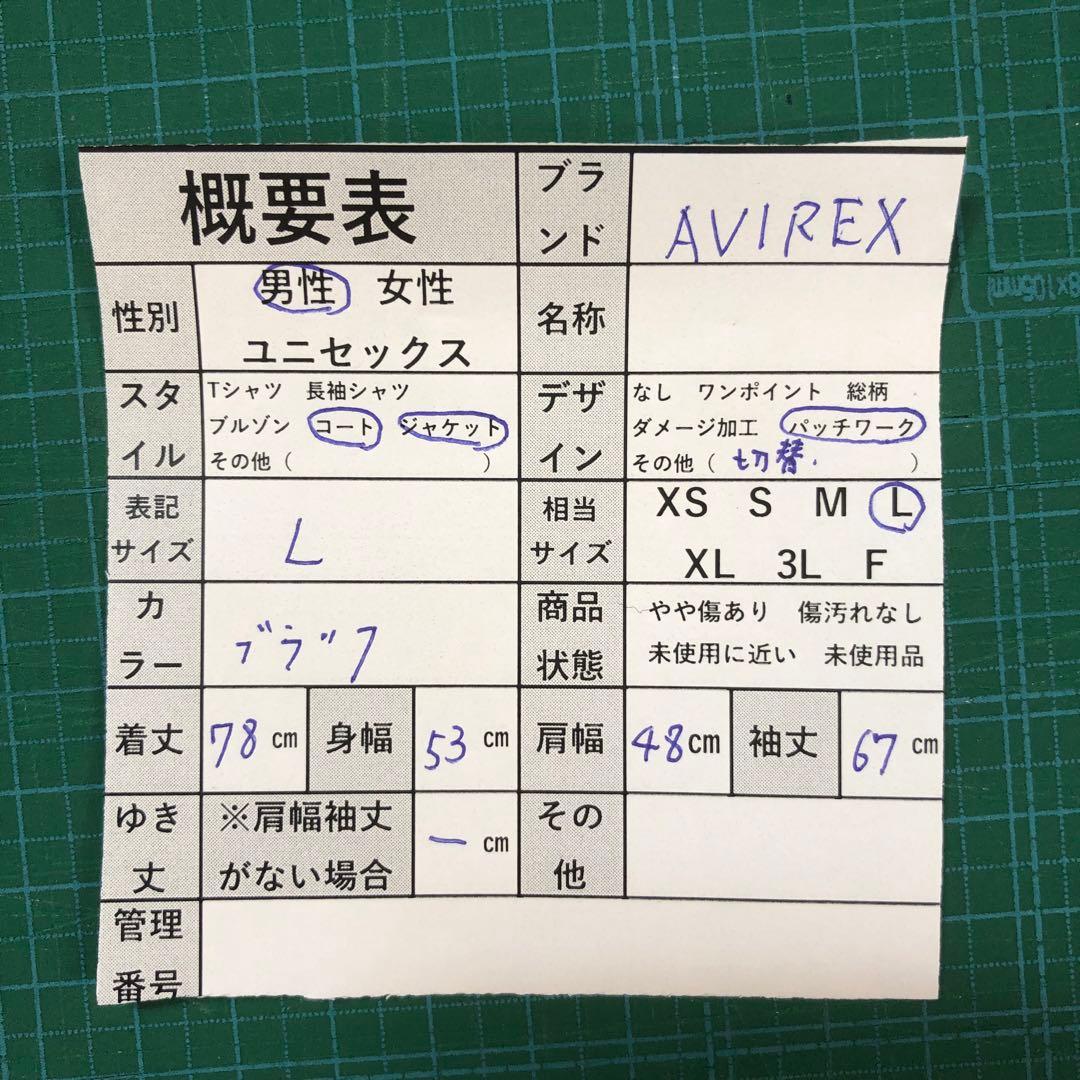 概要表
ブランド
AVIREX
性別
男性 女性
ユニセックス
名称
スタイル
Tシャツ 長袖シャツ
ブルゾン コート ジャケット
その他（ ）
デザイン
なし ワンポイント 総柄
ダメージ加工 パッチワーク
その他（ 切替. ）
表記
サイズ
L
相当
サイズ
XS S M L
XL 3L F
カラー
ブラック
商品
状態
やや傷あり 傷汚れなし
未使用に近い 未使用品
着丈
78 cm
身幅
53 cm
肩幅
48 cm
袖丈
67 cm
ゆき丈
※肩幅袖丈
がない場合
ー cm
その他
管理
番号